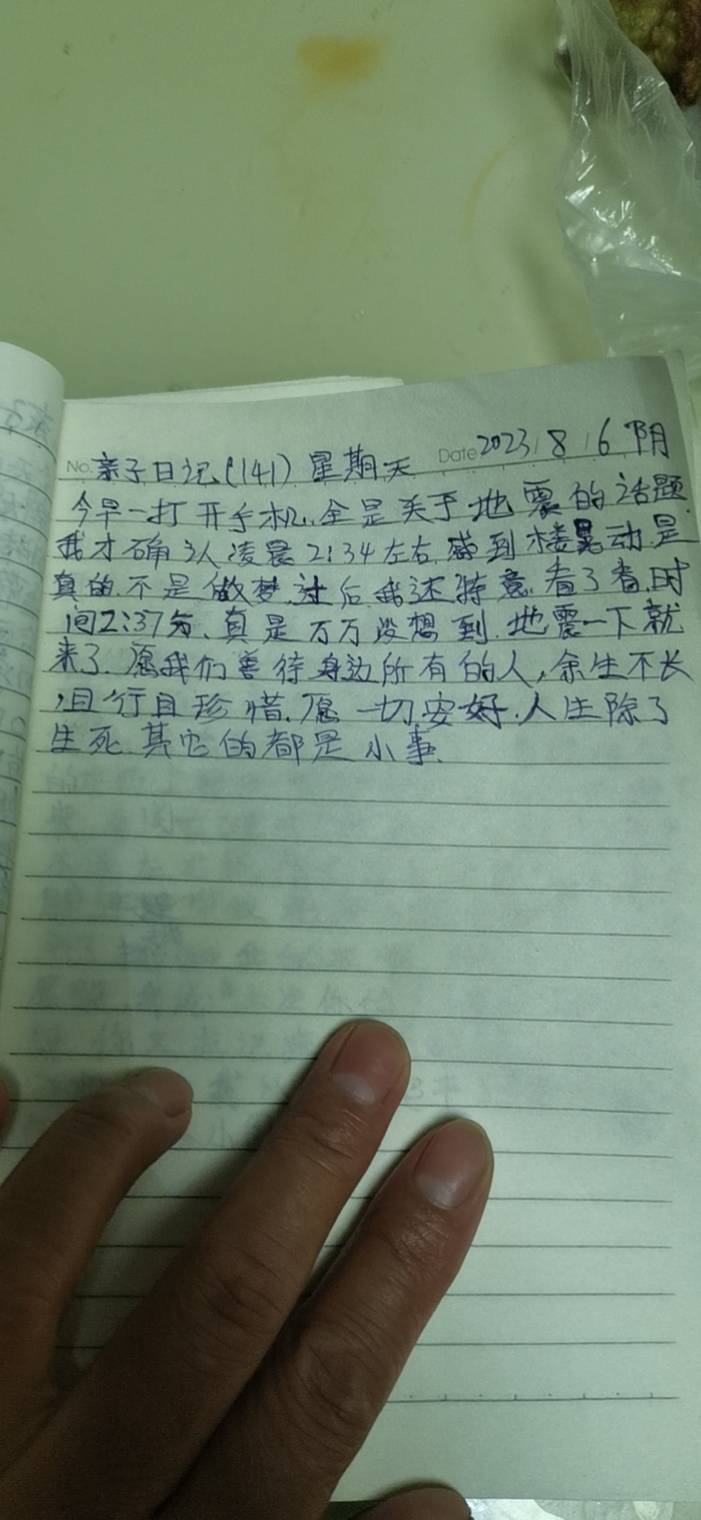 No. 亲子日记(141) 星期天 Date 2023 / 8 / 6 阴
今早一打开手机,全是关于地震的话题.
我才确认凌晨2:34左右,感到楼晃动,是
真的,不是做梦,过后,我还特意,看了看,时
间2:37分、真是万万没想到,地震一下就
来了.愿我们善待身边所有的人,余生不长
,且行且珍惜.愿一切安好.人生除了
生死,其它的都是小事.